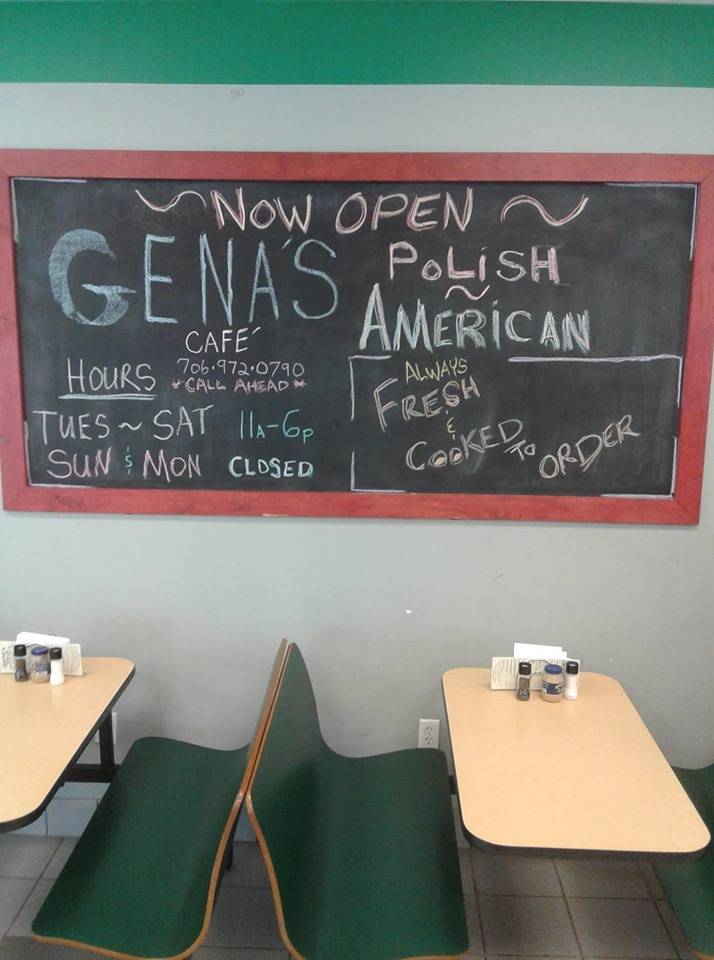 ~ NOW OPEN ~
GENA'S
CAFE´
706.972.0790
*CALL AHEAD*
HOURS
TUES ~ SAT 11A-6P
SUN & MON CLOSED
POLiSH
~
AMERiCAN
ALWAYS
FRESH
&
COOKED TO ORDER